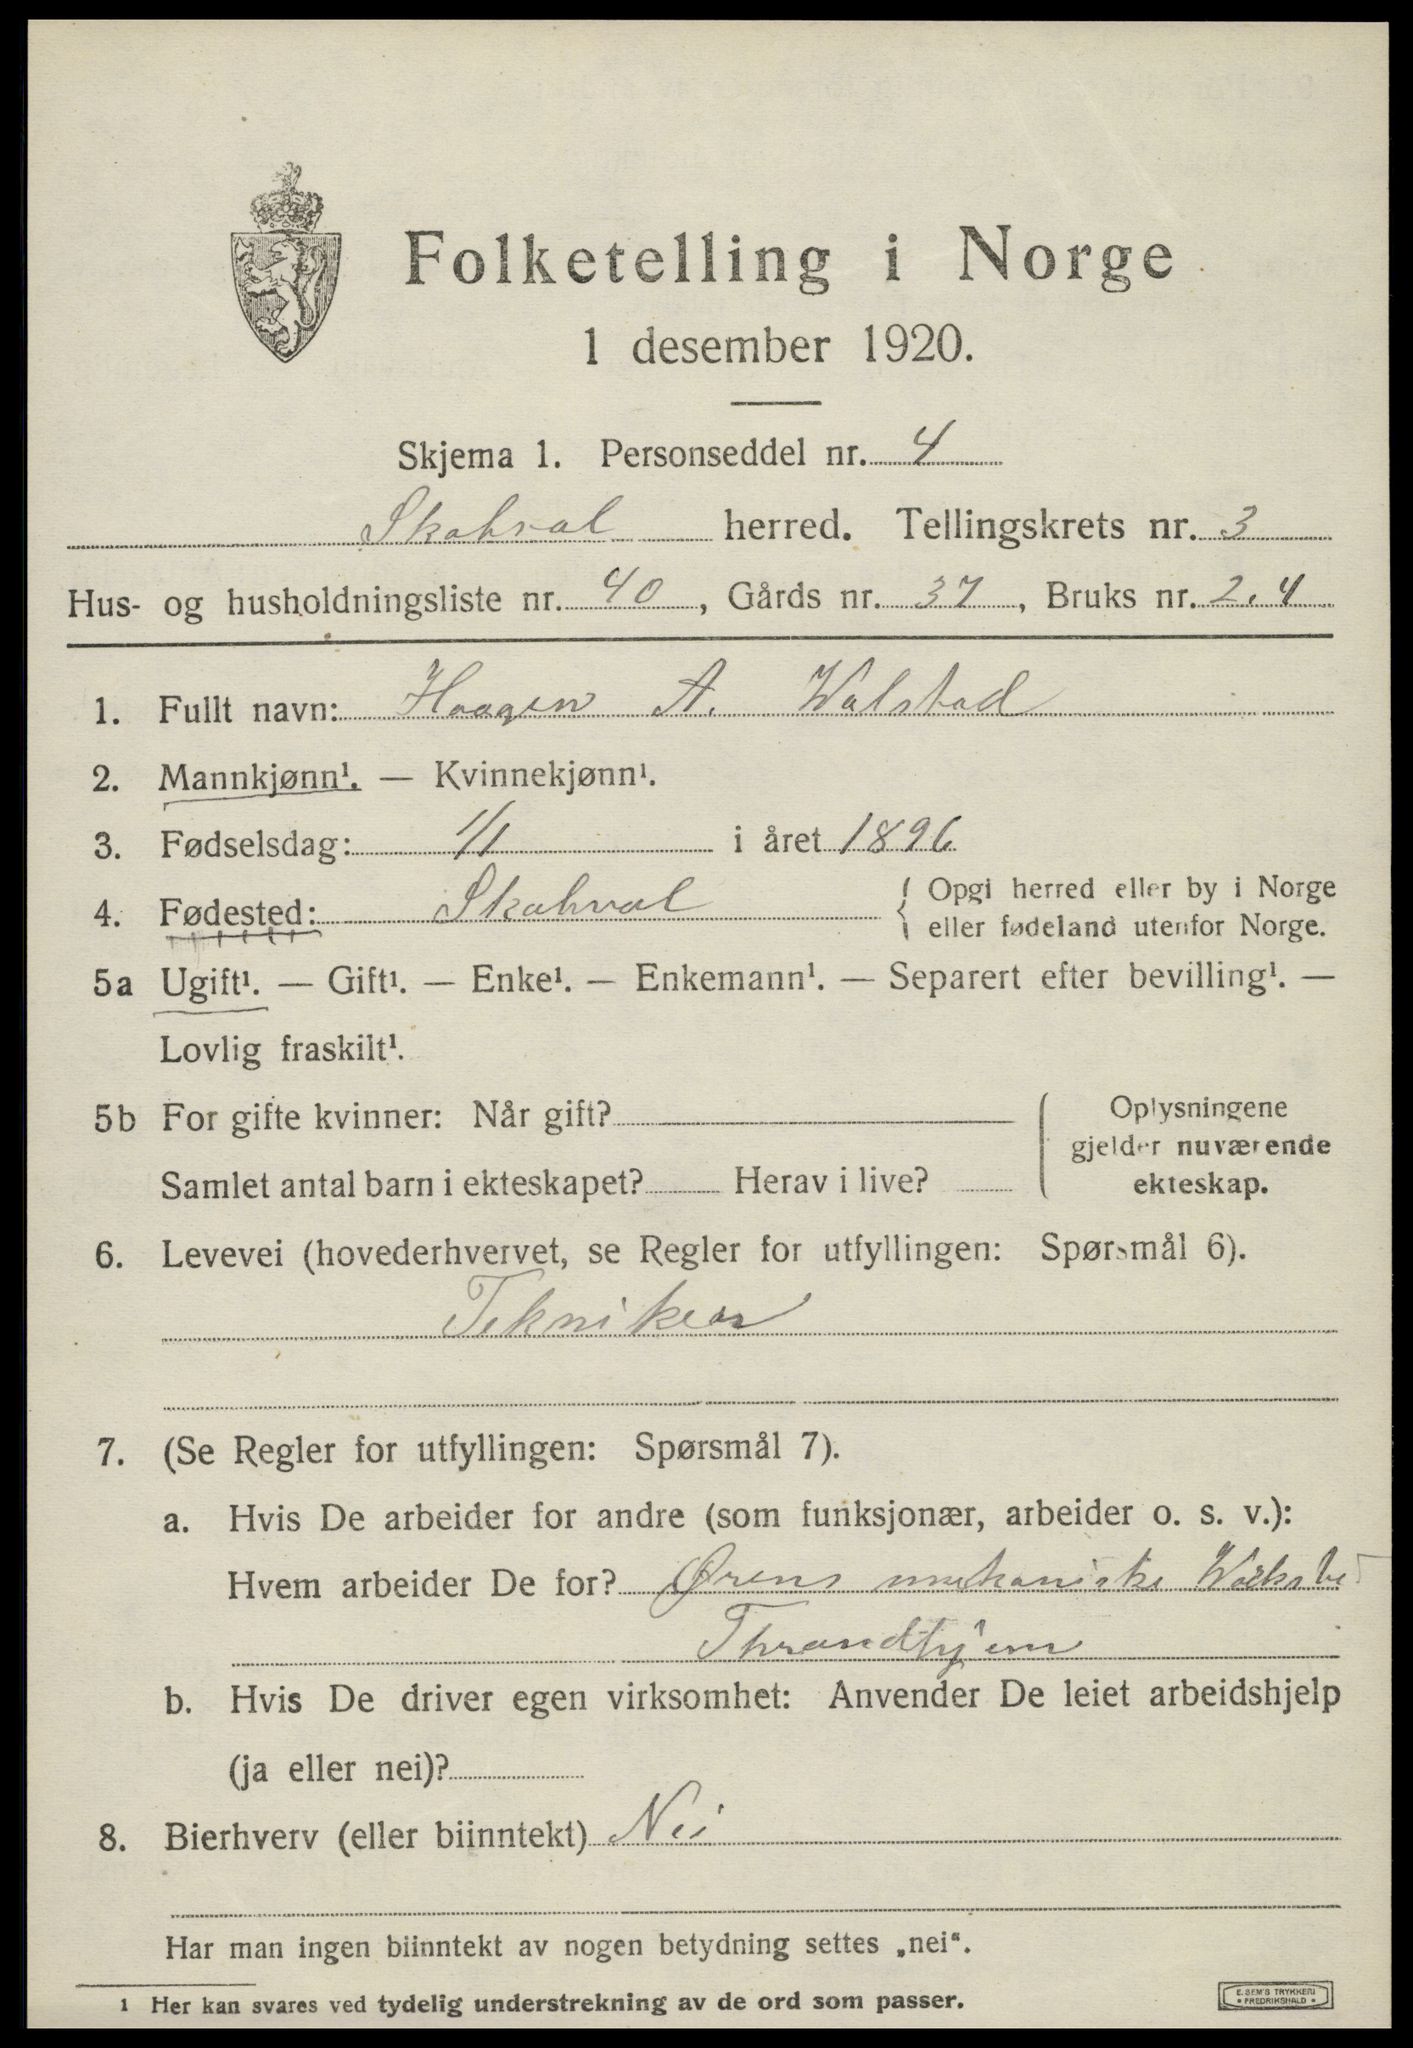 Folketelling i Norge
1 desember 1920.
Skjema 1. Personseddel nr. 4
Skatval herred. Tellingskrets nr. 3
Hus- og husholdningsliste nr. 40, Gårds nr. 37, Bruks nr. 2.4
1. Fullt navn: Haagen A. Walstad
2. Mannkjønn¹. — Kvinnekjønn¹.
3. Fødselsdag: 1/1 i året 1896
4. Fødested: Skatval { Opgi herred eller by i Norge
eller fødeland utenfor Norge.
5a Ugift¹. — Gift¹. — Enke¹. — Enkemann¹. — Separert efter bevilling¹. —
Lovlig fraskilt¹.
5b For gifte kvinner: Når gift? { Oplysningene
gjelder nuværende
Samlet antal barn i ekteskapet? Herav i live? ekteskap.
6. Levevei (hovederhvervet, se Regler for utfyllingen: Spørsmål 6).
Tekniker
7. (Se Regler for utfyllingen: Spørsmål 7).
a. Hvis De arbeider for andre (som funksjonær, arbeider o. s. v.):
Hvem arbeider De for? Ørens mekaniske
Thrandhjem
b. Hvis De driver egen virksomhet: Anvender De leiet arbeidshjelp
(ja eller nei)?
8. Bierhverv (eller biinntekt) Nei
Har man ingen biinntekt av nogen betydning settes „nei“.
1 Her kan svares ved tydelig understrekning av de ord som passer.
E. SEM'S TRYKKERI
• FREDRIKSHALD •